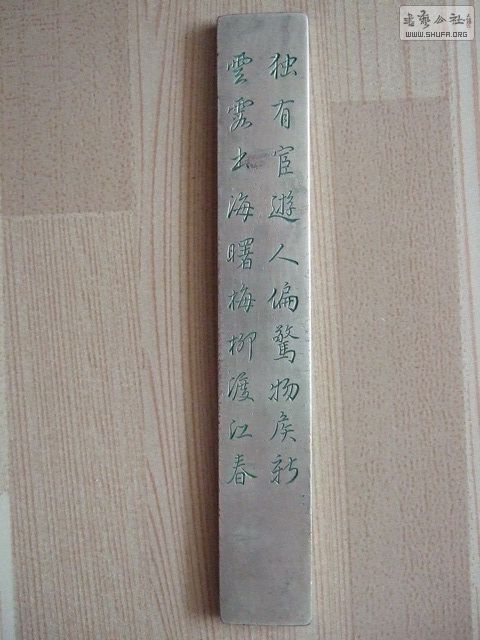 独有宦遊人偏驚物矦新
雲霞出海曙梅柳渡江春
書藝公社
WWW.SHUFA.ORG